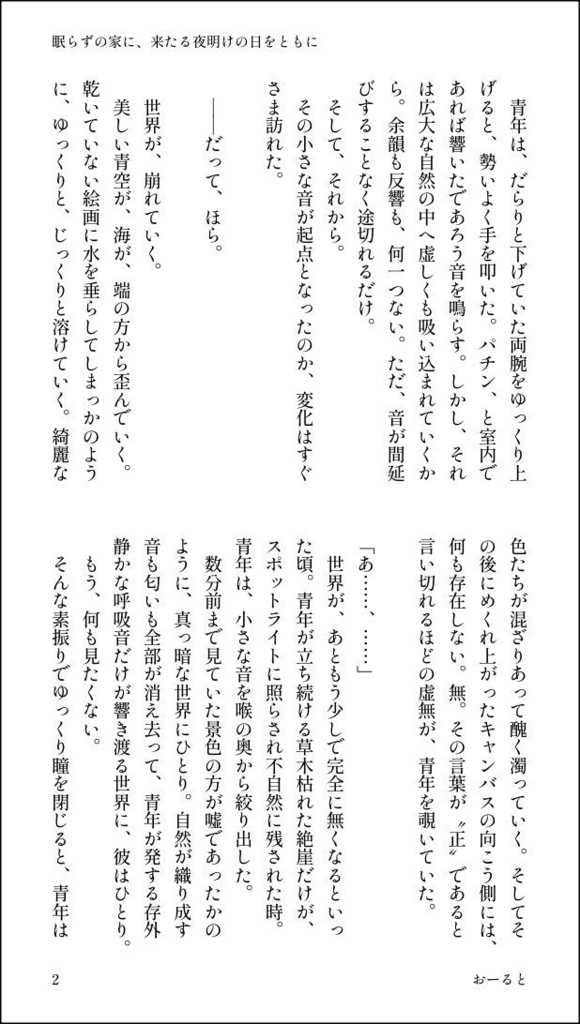 眠らずの家に、来たる夜明けの日をともに
青年は、だらりと下げていた両腕をゆっくり上
げると、勢いよく手を叩いた。パチン、と室内で
あれば響いたであろう音を鳴らす。しかし、それ
は広大な自然の中へ虚しくも吸い込まれていくか
ら。余韻も反響も、何一つない。ただ、音が間延
びすることなく途切れるだけ。
そして、それから。
その小さな音が起点となったのか、変化はすぐ
さま訪れた。
――だって、ほら。
世界が、崩れていく。
美しい青空が、海が、端の方から歪んでいく。
乾いていない絵画に水を垂らしてしまっかのよう
に、ゆっくりと、じっくりと溶けていく。綺麗な
色たちが混ざりあって醜く濁っていく。そしてそ
の後にめくれ上がったキャンバスの向こう側には、
何も存在しない。無。その言葉が〝正〟であると
言い切れるほどの虚無が、青年を覗いていた。
「あ……、……」
世界が、あともう少しで完全に無くなるといっ
た頃。青年が立ち続ける草木枯れた絶崖だけが、
スポットライトに照らされ不自然に残された時。
青年は、小さな音を喉の奥から絞り出した。
数分前まで見ていた景色の方が嘘であったかの
ように、真っ暗な世界にひとり。自然が織り成す
音も匂いも全部が消え去って、青年が発する存外
静かな呼吸音だけが響き渡る世界に、彼はひとり。
もう、何も見たくない。
そんな素振りでゆっくり瞳を閉じると、青年は
2
おーると